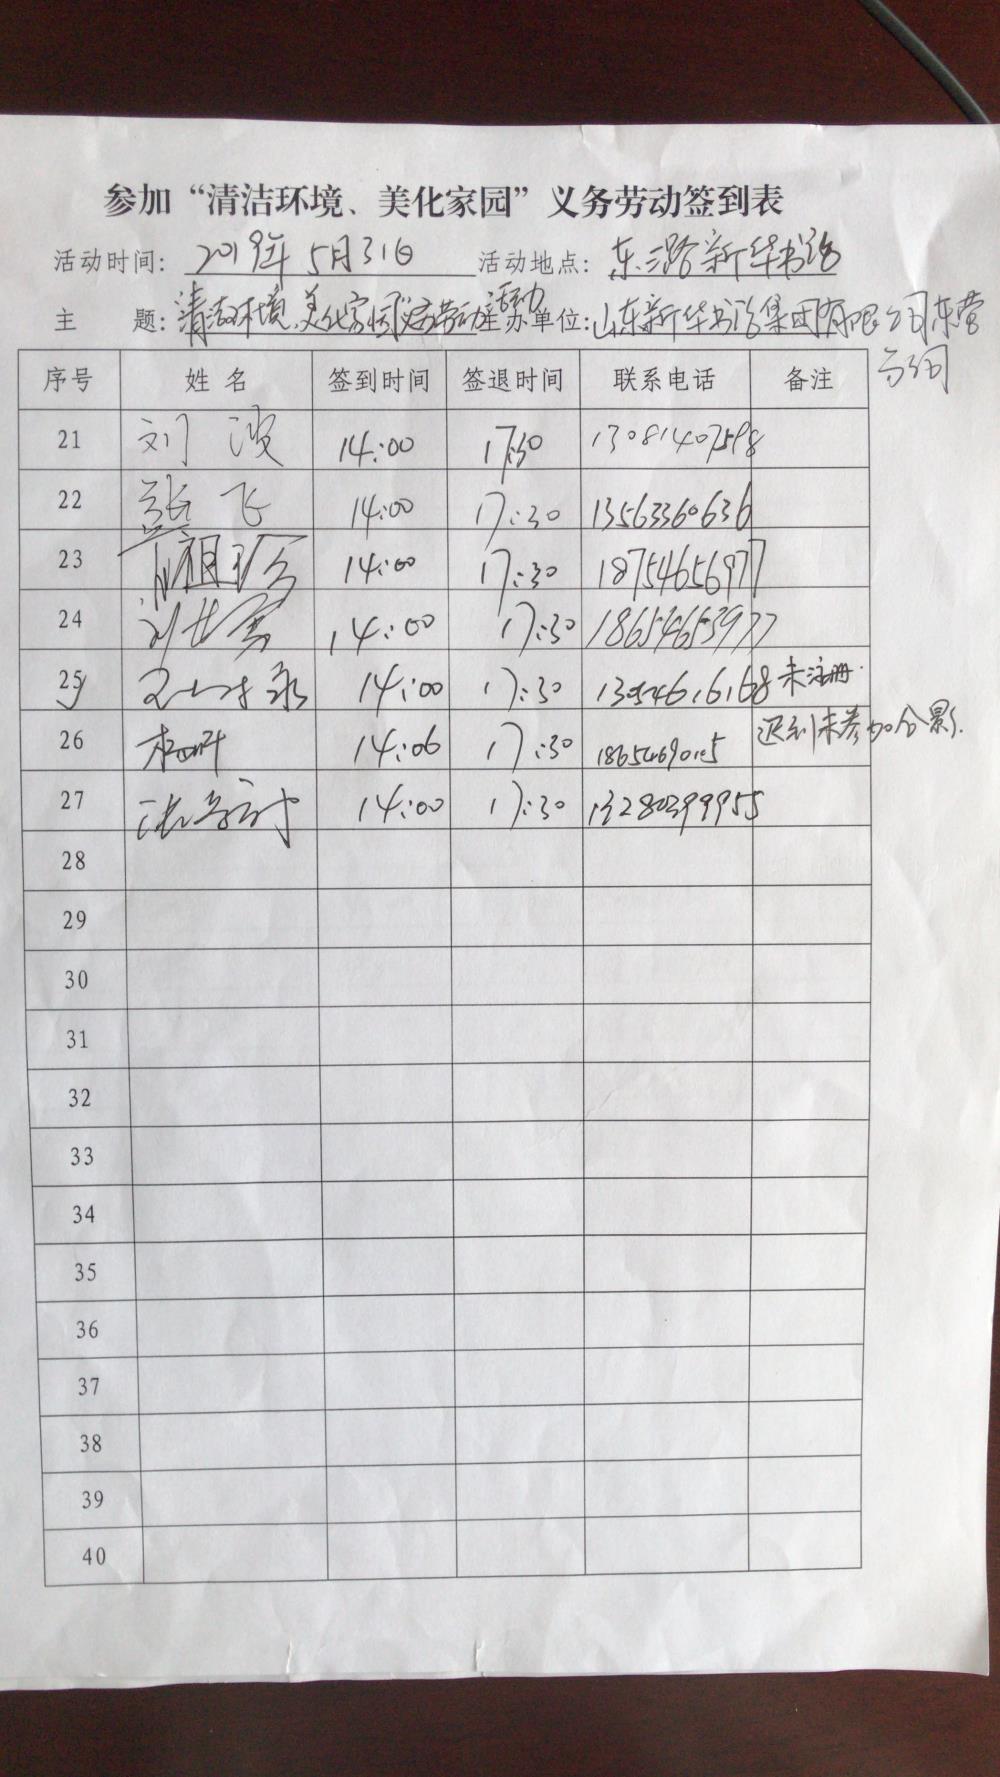 参加“清洁环境、美化家园”义务劳动签到表
活动时间：2019年5月31日 活动地点：东三路新华书店
主 题：清洁环境、美化家园义务劳动活动 主办单位：山东新华书店集团有限公司东营
分公司
序号 姓名 签到时间 签退时间 联系电话 备注
21 刘波 14:00 17:30 13081407598
22 飞 14:00 17:30 13563360636
23 14:00 17:30 18754656977
24 14:00 17:30 18654653977
25 14:00 17:30 13954616168 未注册
26 14:06 17:30 迟到未参加合影.
27 14:00 17:30 13280399955
28
29
30
31
32
33
34
35
36
37
38
39
40